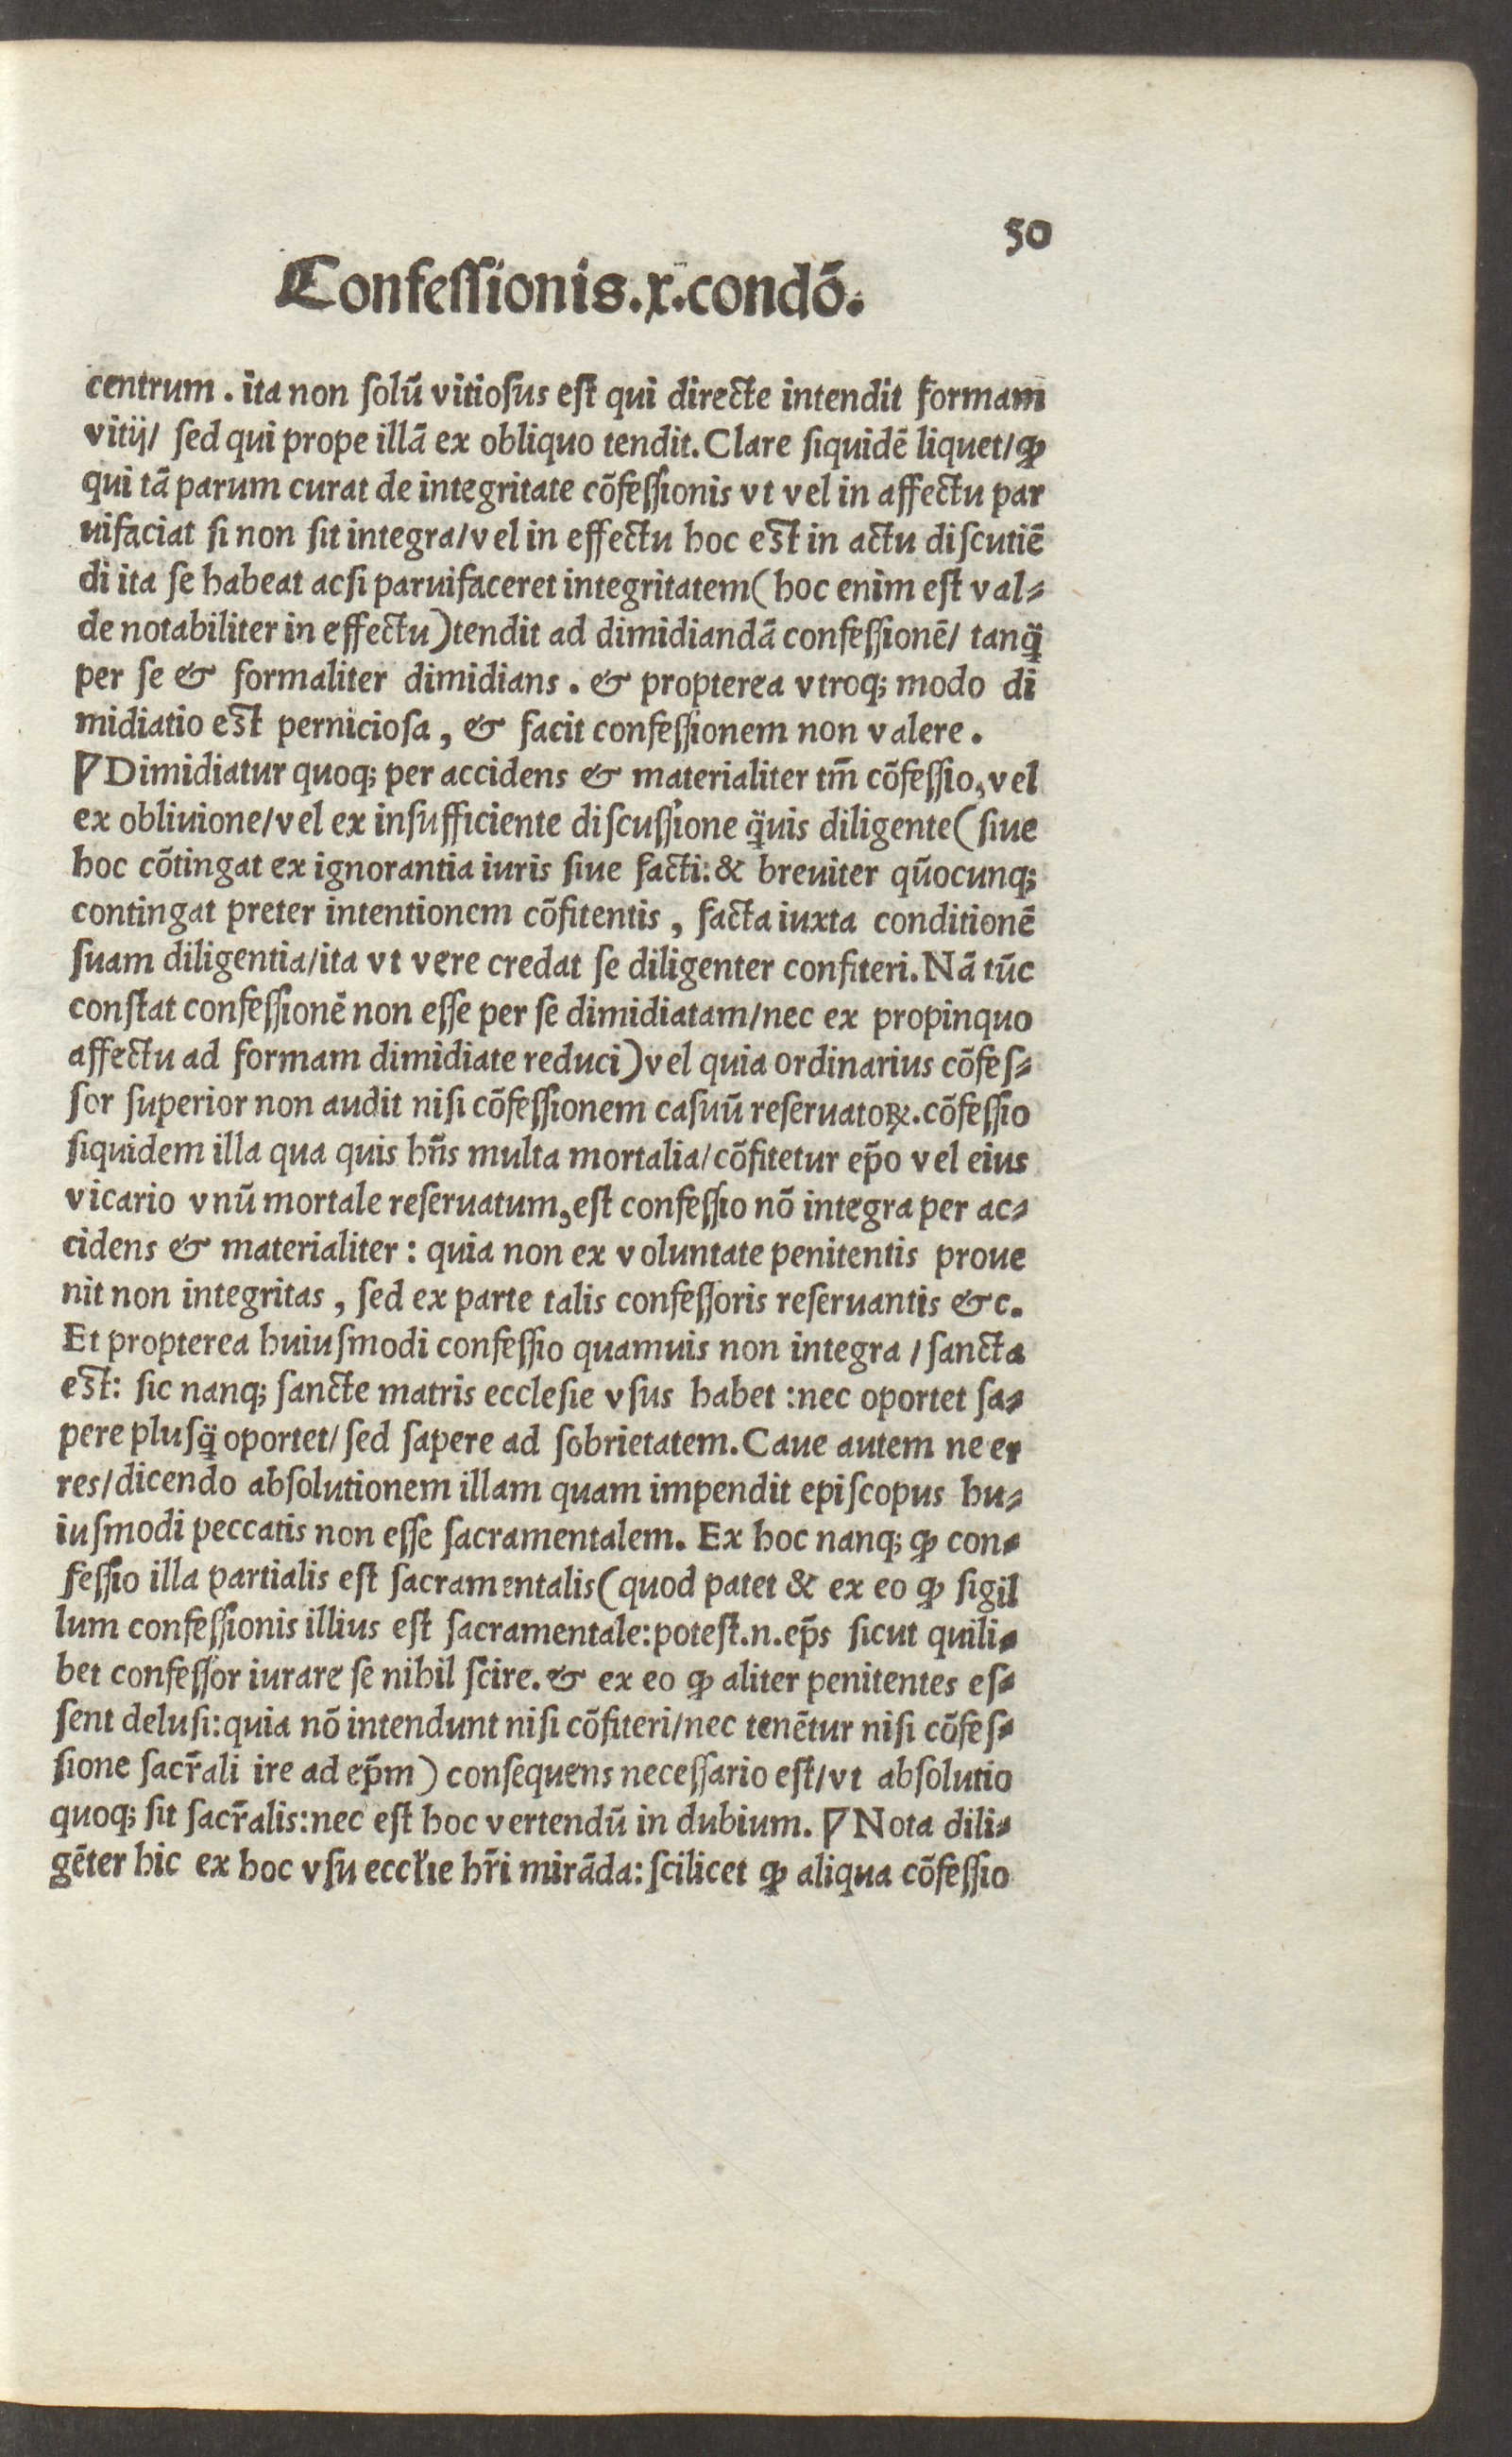 50
Confessionis.x.condõ.
centrum . ita non ſolũ vitioſus eſt qui directe intendit formam
vitij/ ſed qui prope illã ex obliquo tendit. Clare ſiquidẽ liquet/ꝙ
qui tã parum curat de integritate cõfeſſionis vt vel in affectu par
uifaciat ſi non ſit integra/vel in effectu hoc eſt in actu diſcutiẽ
di ita ſe habeat acſi paruifaceret integritatem(hoc enim eſt val⸗
de notabiliter in effectu)tendit ad dimidiandã confeſſionẽ/ tanq̈
per ſe & formaliter dimidians . & propterea vtroq; modo di
midiatio eſt pernicioſa , & facit confeſſionem non valere .
¶Dimidiatur quoq; per accidens & materialiter tm̃ cõfeſſio, vel
ex obliuione/vel ex inſufficiente diſcuſſione q̈uis diligente(ſiue
hoc cõtingat ex ignorantia iuris ſiue facti: & breuiter qũocunq;
contingat preter intentionem cõfitentis , facta iuxta conditionẽ
ſuam diligentia/ita vt vere credat ſe diligenter confiteri. Nã tũc
conſtat confeſſionẽ non eſſe per ſe dimidiatam/nec ex propinquo
affectu ad formam dimidiate reduci)vel quia ordinarius cõfeſ⸗
ſor ſuperior non audit niſi cõfeſſionem caſuũ reſeruatoꝝ. cõfeſſio
ſiquidem illa qua quis hñs multa mortalia/cõfitetur ep̃o vel eius
vicario vnũ mortale reſeruatum, eſt confeſſio nõ integra per ac⸗
cidens & materialiter : quia non ex voluntate penitentis proue
nit non integritas , ſed ex parte talis confeſſoris reſeruantis &c.
Et propterea huiuſmodi confeſſio quamuis non integra /ſancta
eſt: ſic nanq; ſancte matris eccleſie vſus habet :nec oportet ſa⸗
pere pluſq̈ oportet/ ſed ſapere ad ſobrietatem. Caue autem ne er
res/dicendo abſolutionem illam quam impendit epiſcopus hu⸗
iuſmodi peccatis non eſſe ſacramentalem. Ex hoc nanq; ꝙ con⸗
feſſio illa partialis eſt ſacramentalis(quod patet & ex eo ꝙ ſigil
lum confeſſionis illius eſt ſacramentale:poteſt.n.ep̃s ſicut quili⸗
bet confeſſor iurare ſe nihil ſcire. & ex eo ꝙ aliter penitentes eſ⸗
ſent deluſi:quia nõ intendunt niſi cõfiteri/nec tenẽtur niſi cõfeſ⸗
ſione ſacr̃ali ire ad ep̃m) conſequens neceſſario eſt/vt abſolutio
quoq; ſit ſacr̃alis:nec eſt hoc vertendũ in dubium. ¶ Nota dili⸗
gẽter hic ex hoc vſu eccl̃ie hr̃i mirãda: ſcilicet ꝙ aliqua cõfeſſio